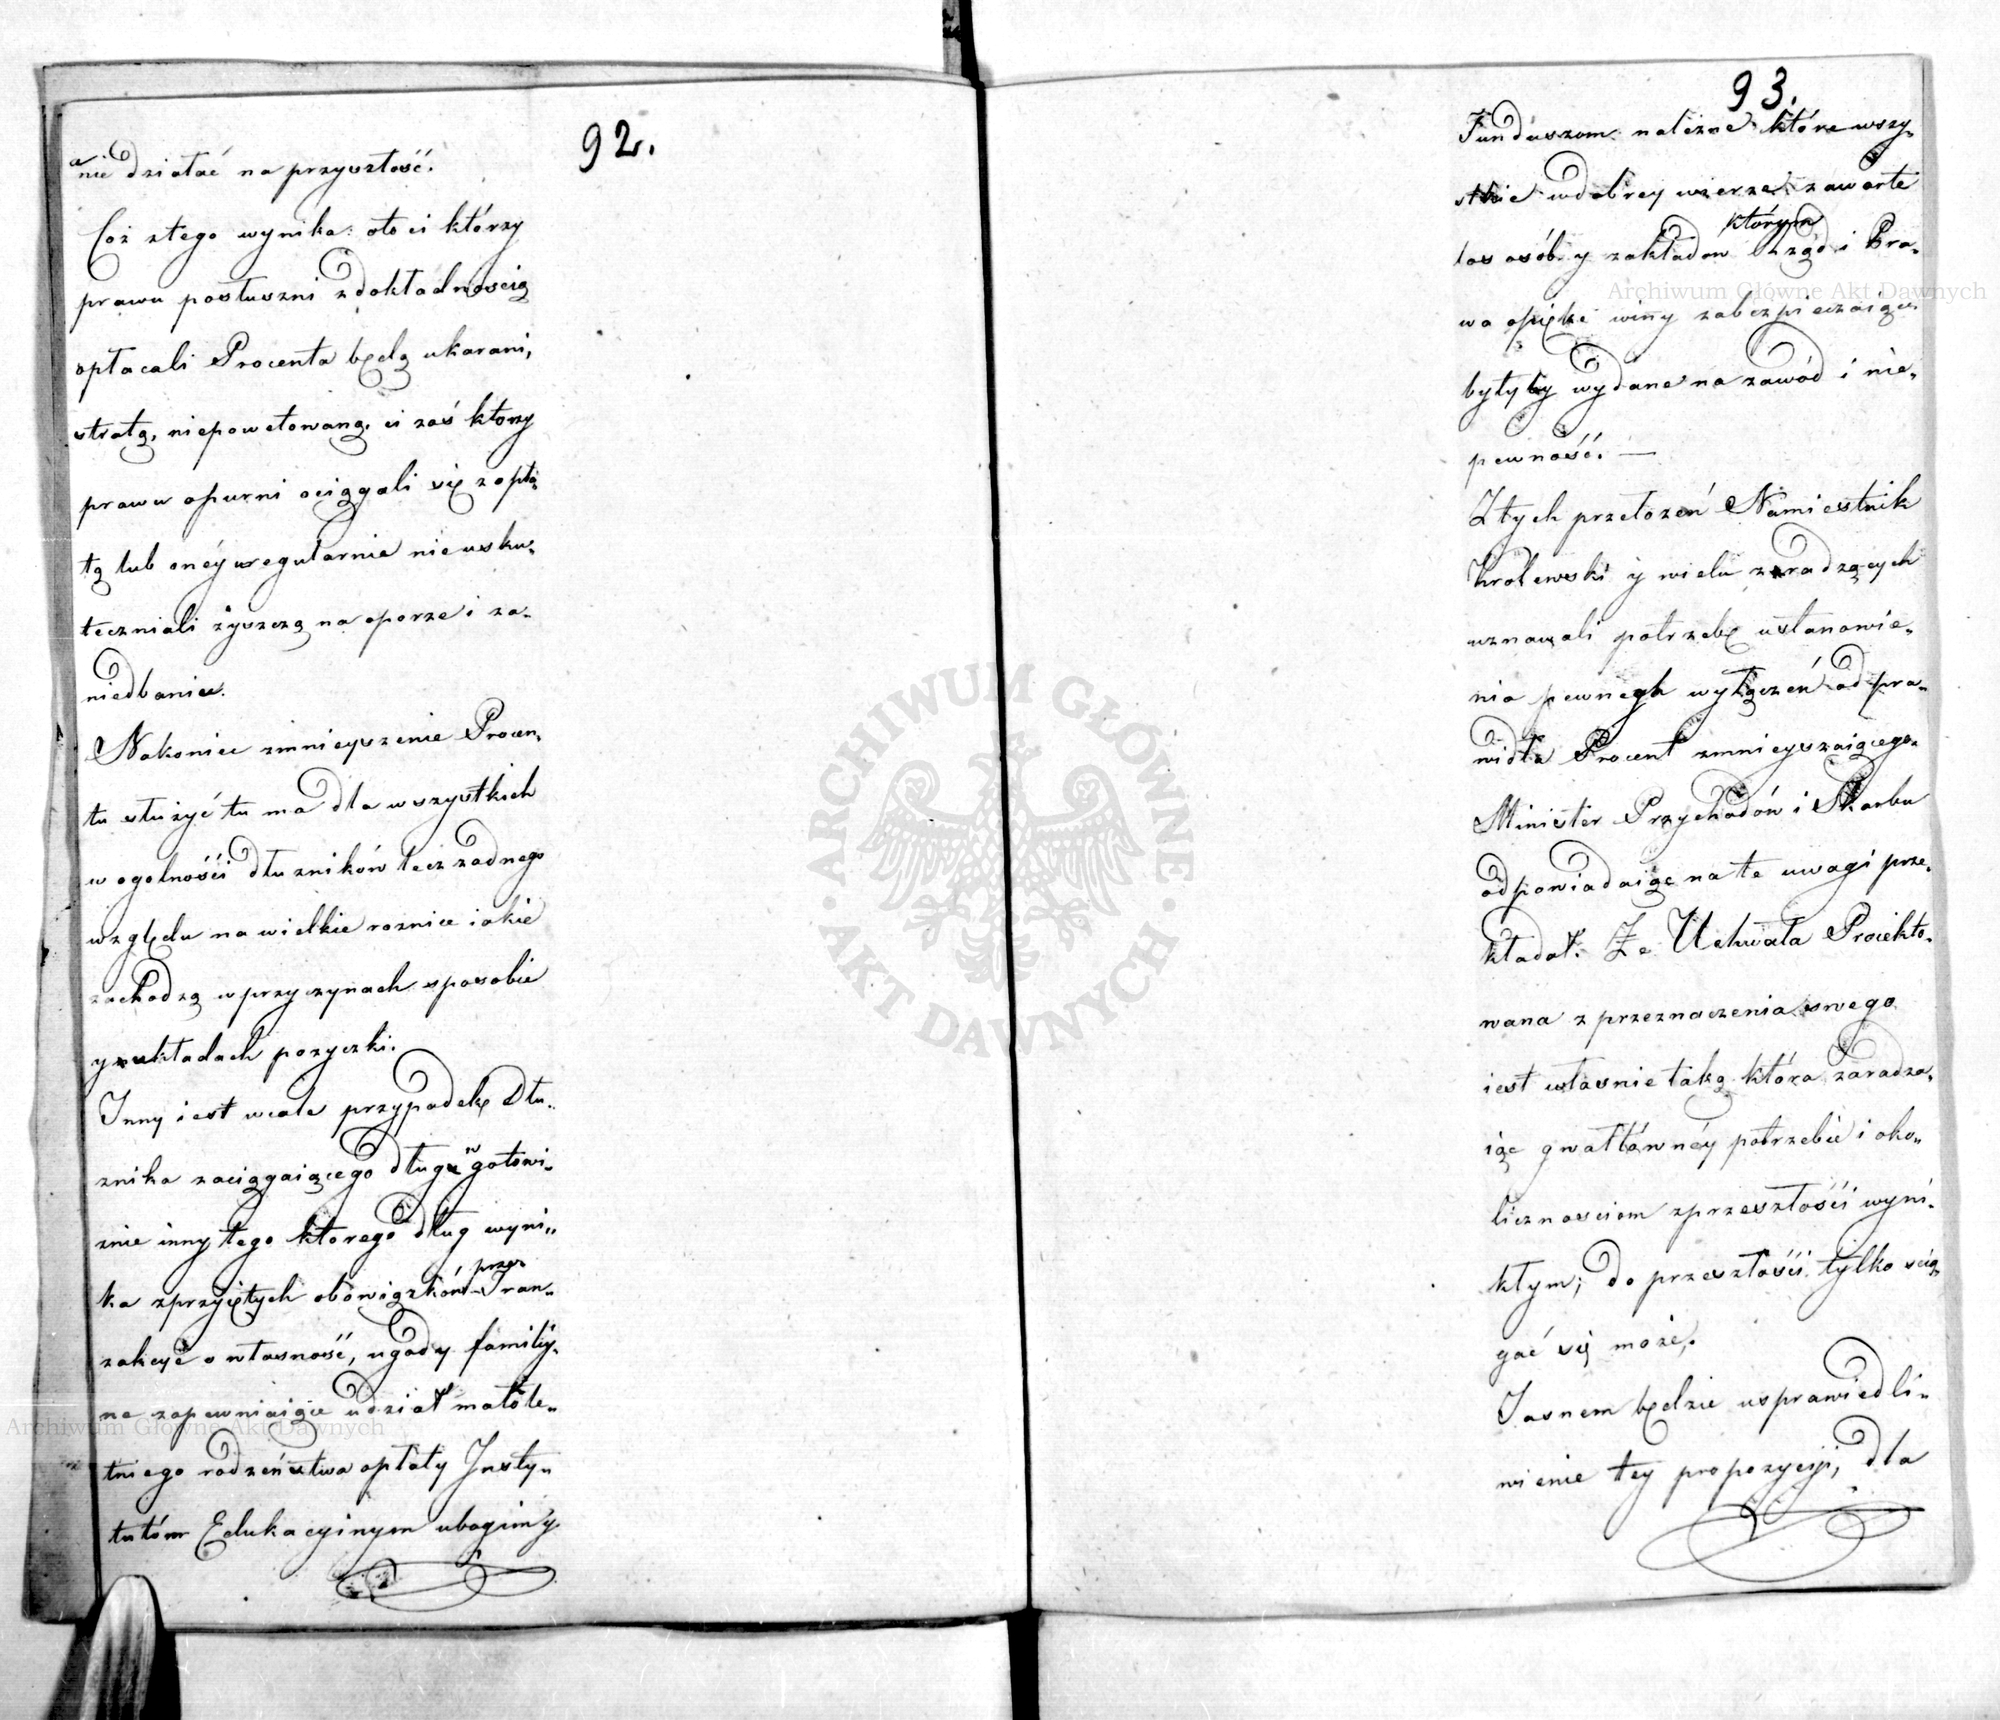 92.
a nie działać na przyszłość.
Coż ztego wynika: oto ci którzy
prawu posłuszni zdokładnoscią
opłacali Procenta będą ukarani,
stratą, niepowetowaną, ci zaś ktorzy
prawu oporni ociągali się zopła„
tą lub onéy regularnie nieusku„
teczniali zyszczą na oporze i za„
niedbaniu.
Nakoniec zmnieyszenie Procen„
tu służyć tu ma dla wszystkich
w ogolnośći dłużników lecz żadnego
względu na wielkie roznice iakie
zachodzą w przyczynach sposobie
y układach pozyczki.
Inny iest wcale przypadek Dłu„
znika zaciągaiącego długi w gotowi„
znie inny tego ktorego dług wyni„
ka zprzyiętych obowiązków przez Tran„
zakcye o własność, ugody famili„
ne zapewniaiące udział małole„
tniego rodzeństwa opłaty Insty„
tutóm Edukacyinym ubogim y
93.
Funduszom nalezne które wszy„
stkie wdobrey wierze zawarte
los osób y zakładow którym Rząd i Pra„
wo opiekę winny zabezpieczaiące
byłyby wydane na zawód i nie„
pewność. —
Z tych przełozeń Namiestnik
Krolewski y wielu zradzących
uznawali potrzebę ustanowie„
nia pewnych wyłączeń od pra„
widła Procent zmnieyszaiącego.
Minister Przychodów i Skarbu
odpowiadaiąc na te uwagi prze„
kładał. Ze Uchwała Proiekto„
wana z przeznaczenia swego
iest własnie taką która zaradza„
iąc gwałtównéy potrzebie i oko„
licznosciom zprzeszłośći wyni„
kłym; do przeszłośći tylko scią„
gać się może.
Jasnem będzie usprawiedli„
wienie tey propozycyi, dla
Archiwum Główne Akt Dawnych
Archiwum Główne Akt Dawnych
ARCHIWUM GŁÓWNE · AKT DAWNYCH ·